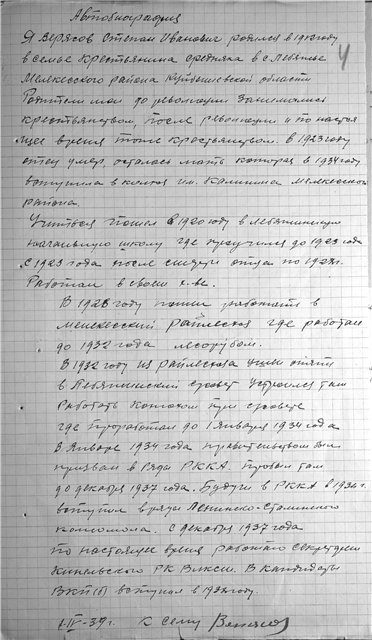 Автобиография
Я Верясов Степан Иванович родился в 1912 году
в семье крестьянина средняка в с Левяжье
Мелекесского района Куйбышевской области
4
Родители мои до революции занимались
крестьянством, после революции и по настоя
щее время тоже крестьянством. В 1923 году
отец умер, осталась мать которая в 1934 году
вступила в колхоз им. Калинина Мелекесского
района.
Учиться пошел в 1920 году в
начальную школу где проучился до 1923 года
с 1923 года после смерти отца по 1928 г.
Работал в своем х-ве.
В 1928 году пошел работать в
Мелекесский райлесхоз где работал
до 1932 года лесорубом.
В 1932 году из райлесхоза ушел опять
в сровет устроился там
работать при сровете
где проработал до 1 января 1934 года
В январе 1934 года правительством был
призван в ряды РККА. Пробыл там
до декабря 1937 года. Будучи в РККА в
вступил в ряды Ленинско-Сталинского
комсомола. С декабря 1937 года
по настоящее время работаю секретарем
РК ВЛКСМ. В кандидаты
ВКП(б) вступил в году.
1-IV-39 г. К сему